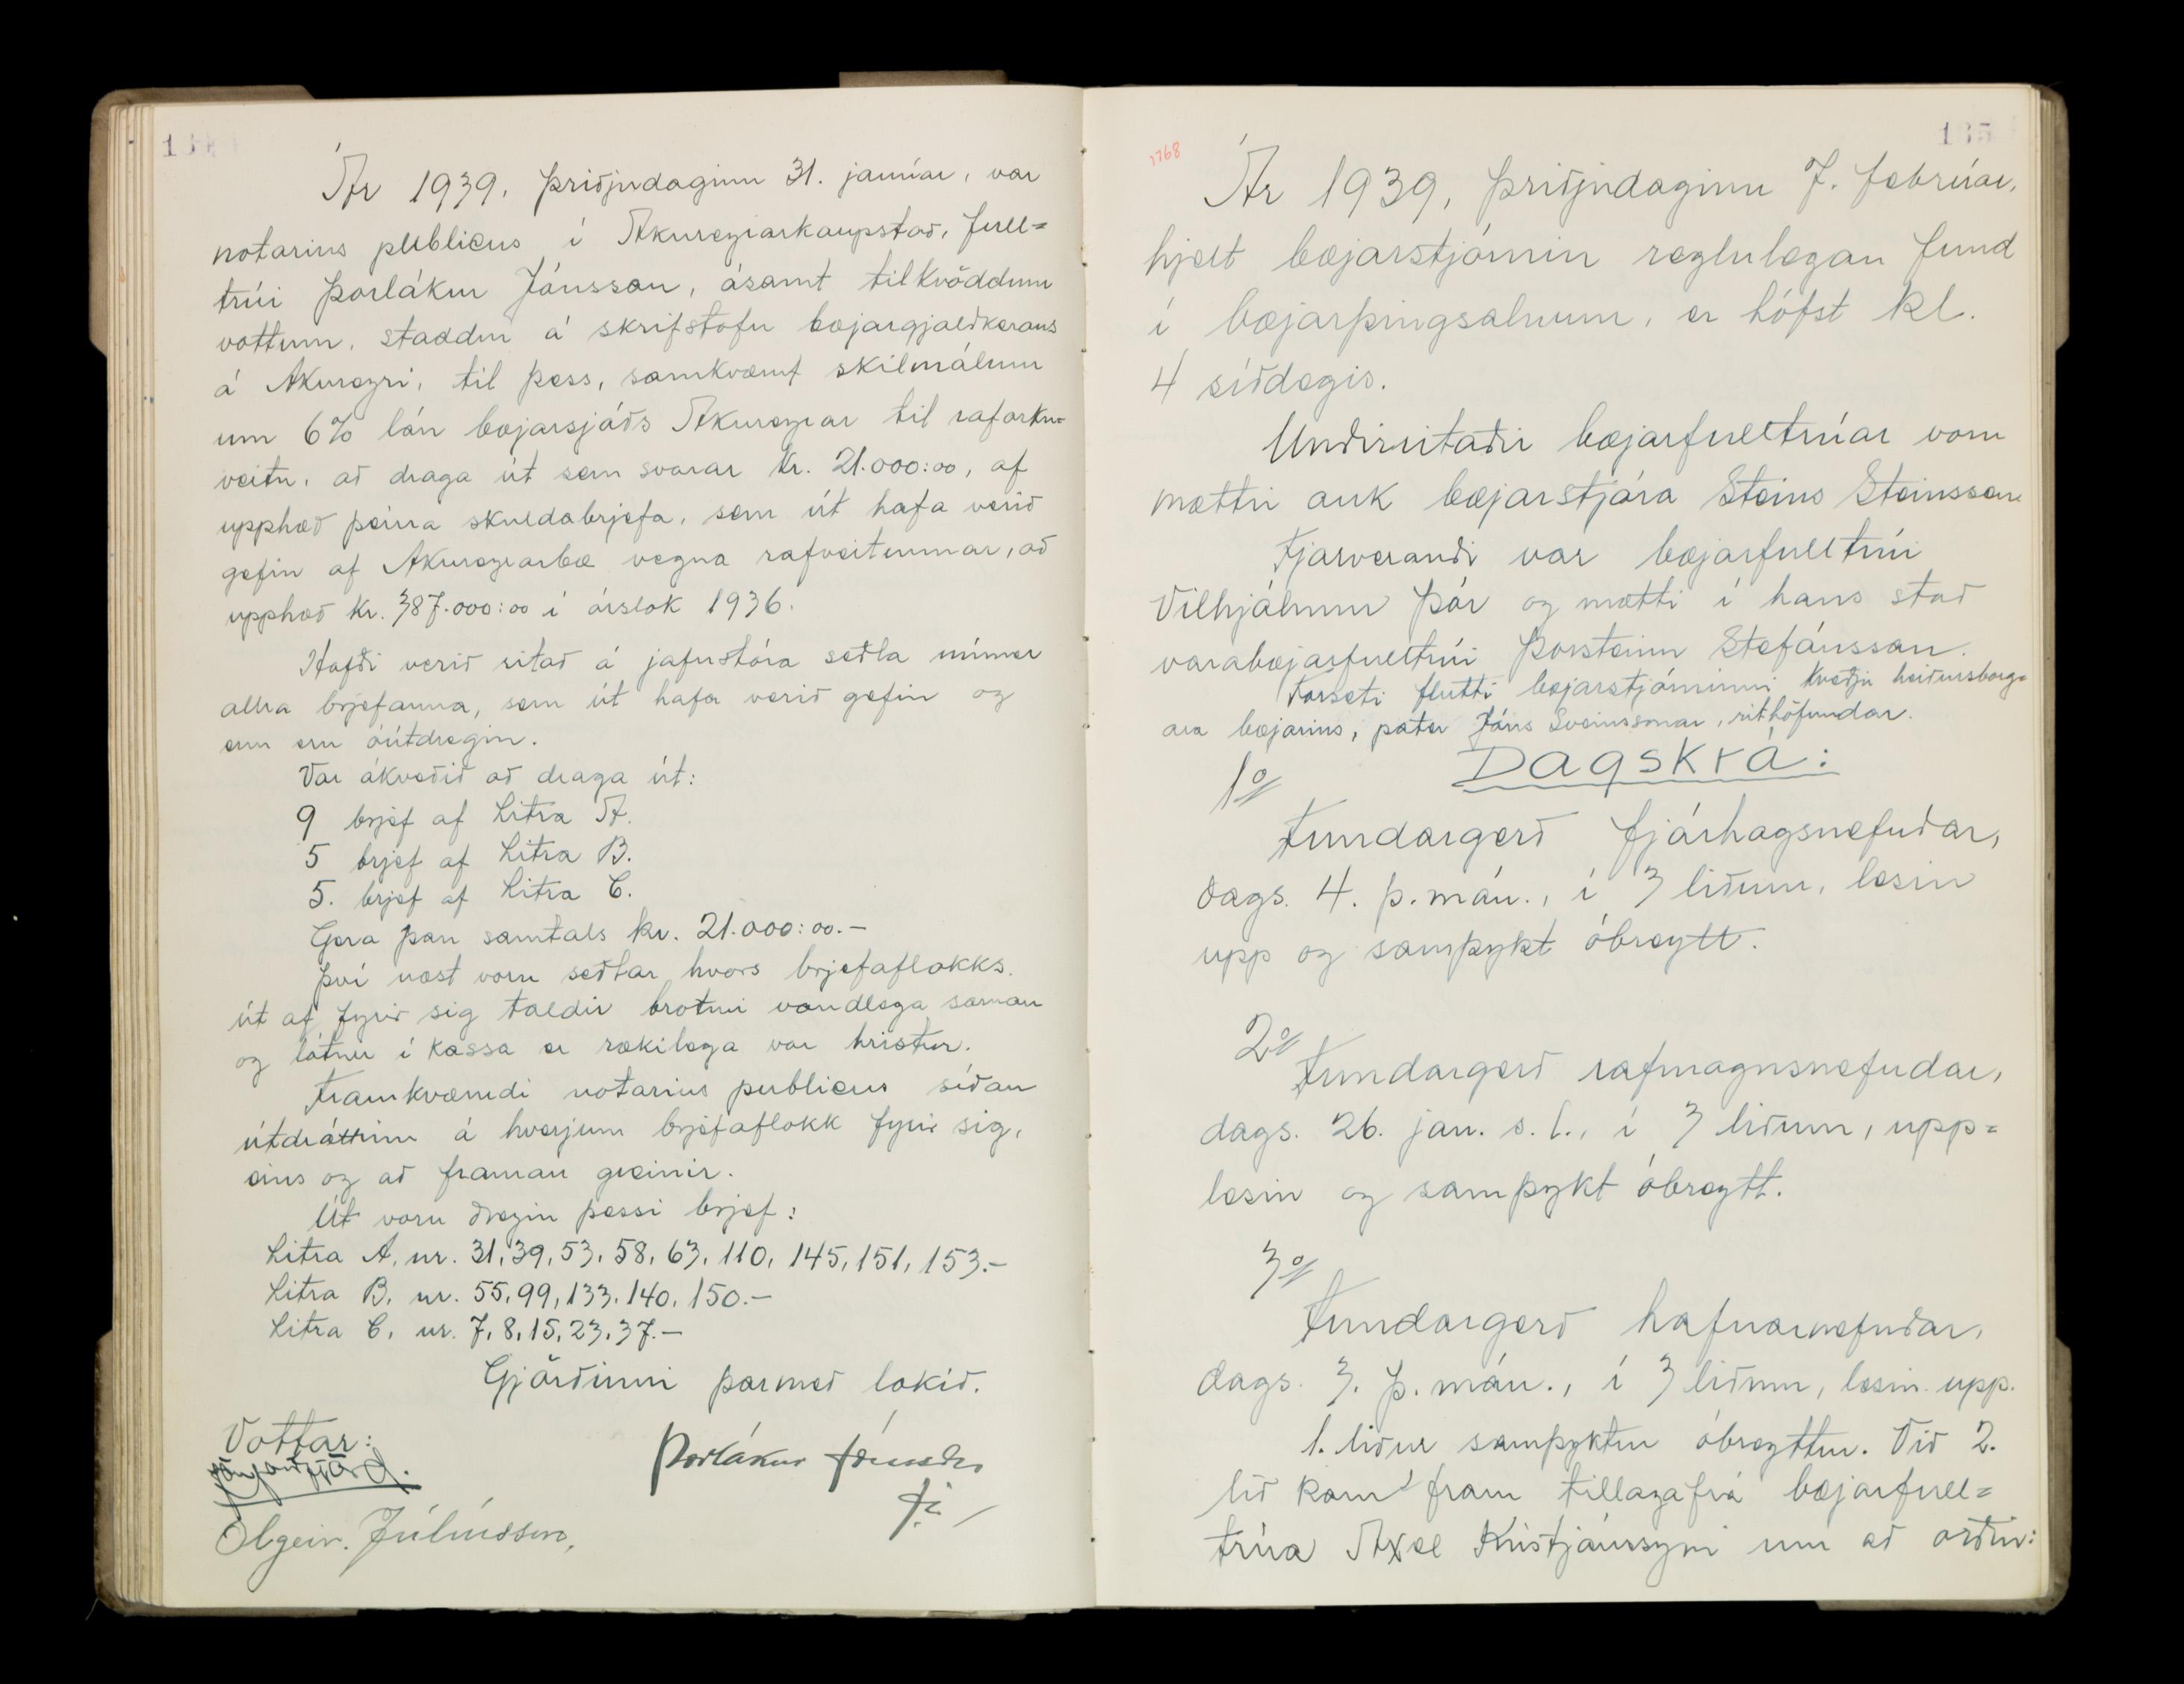 Ár 1939, þriðjudaginn 31. janúar, var
notarius publicus í Akureyrarkaupstað, full=
trúi Þorlákur Jónsson, ásamt tilkvöddum
vottum, staddur á skrifstofu bæjargjaldkerans
á Akureyri, til þess, samkvæmt skilmálum
um 6% lán bæjarsjóðs Akureyrar til raforku=
veitu, að draga út sem svarar kr. 21.000:00, af
upphæð þeirra skuldabrjefa, sem út hafa verið
gefin af Akureyrarbæ vegna rafveitunnar, að
upphæð kr. 387.000:00 í árslok 1936.
Hafði verið ritað á jafnstóra seðla númer
allra brjefanna, sem út hafa verið gefin og
enn eru óútdregin.
Var ákveðið að draga út:
9 brjef af Litra A.
5 brjef af Litra B.
5. brjef af Litra C.
Gera þau samtals kr. 21.000:00.-
Því næst voru seðlar hvers brjefaflokks
út af fyrir sig taldir brotnir vandlega saman
og látnir í kassa er rækilega var hristur.
Framkvæmdi notarius publicus síðan
útdráttinn á hverjum brjefaflokk fyrir sig,
eins og að framan greinir.
Út voru dregin þessi brjef:
Litra A, nr. 31, 39, 53, 58, 63, 110, 145, 151, 153.-
Litra B, nr. 55, 99, 133, 140, 150.-
Litra C, nr. 7, 8, 15, 23, 37.-
Gjörðinni þarmeð lokið.
Vottar:
Þorlákur Jónsson
ftr.
Olgeir Júlíusson,
1768
135
Ár 1939, þriðjudaginn 7. febrúar,
hjelt bæjarstjórnin reglulegan fund
í bæjarþingsalnum, er hófst kl.
4 síðdegis.
Undirritaðir bæjarfulltrúar voru
mættir auk bæjarstjóra Steins Steinssen.
Fjarverandi var bæjarfulltrúi
Vilhjálmur Þór og mætti í hans stað
varabæjarfulltrúi Þorsteinn Stefánsson.
Forseti flutti bæjarstjórninni kveðju heiðursborg=
ara bæjarins, pater Jóns Sveinssonar, rithöfundar.
Dagskrá:
1o/
Fundargerð fjárhagsnefndar,
dags. 4. þ.mán., í 3 liðum, lesin
upp og samþykt óbreytt.
2o/
Fundargerð rafmagnsnefndar,
dags. 26. jan. s.l., í 3 liðum, upp=
lesin og samþykt óbreytt.
3o/
Fundargerð hafnarnefndar,
dags. 3. þ.mán., í 3 liðum, lesin upp.
1. liður samþyktur óbreyttur. Við 2.
lið kom fram tillaga frá bæjarfull=
trúa Axel Kristjánssyni um að orðin: